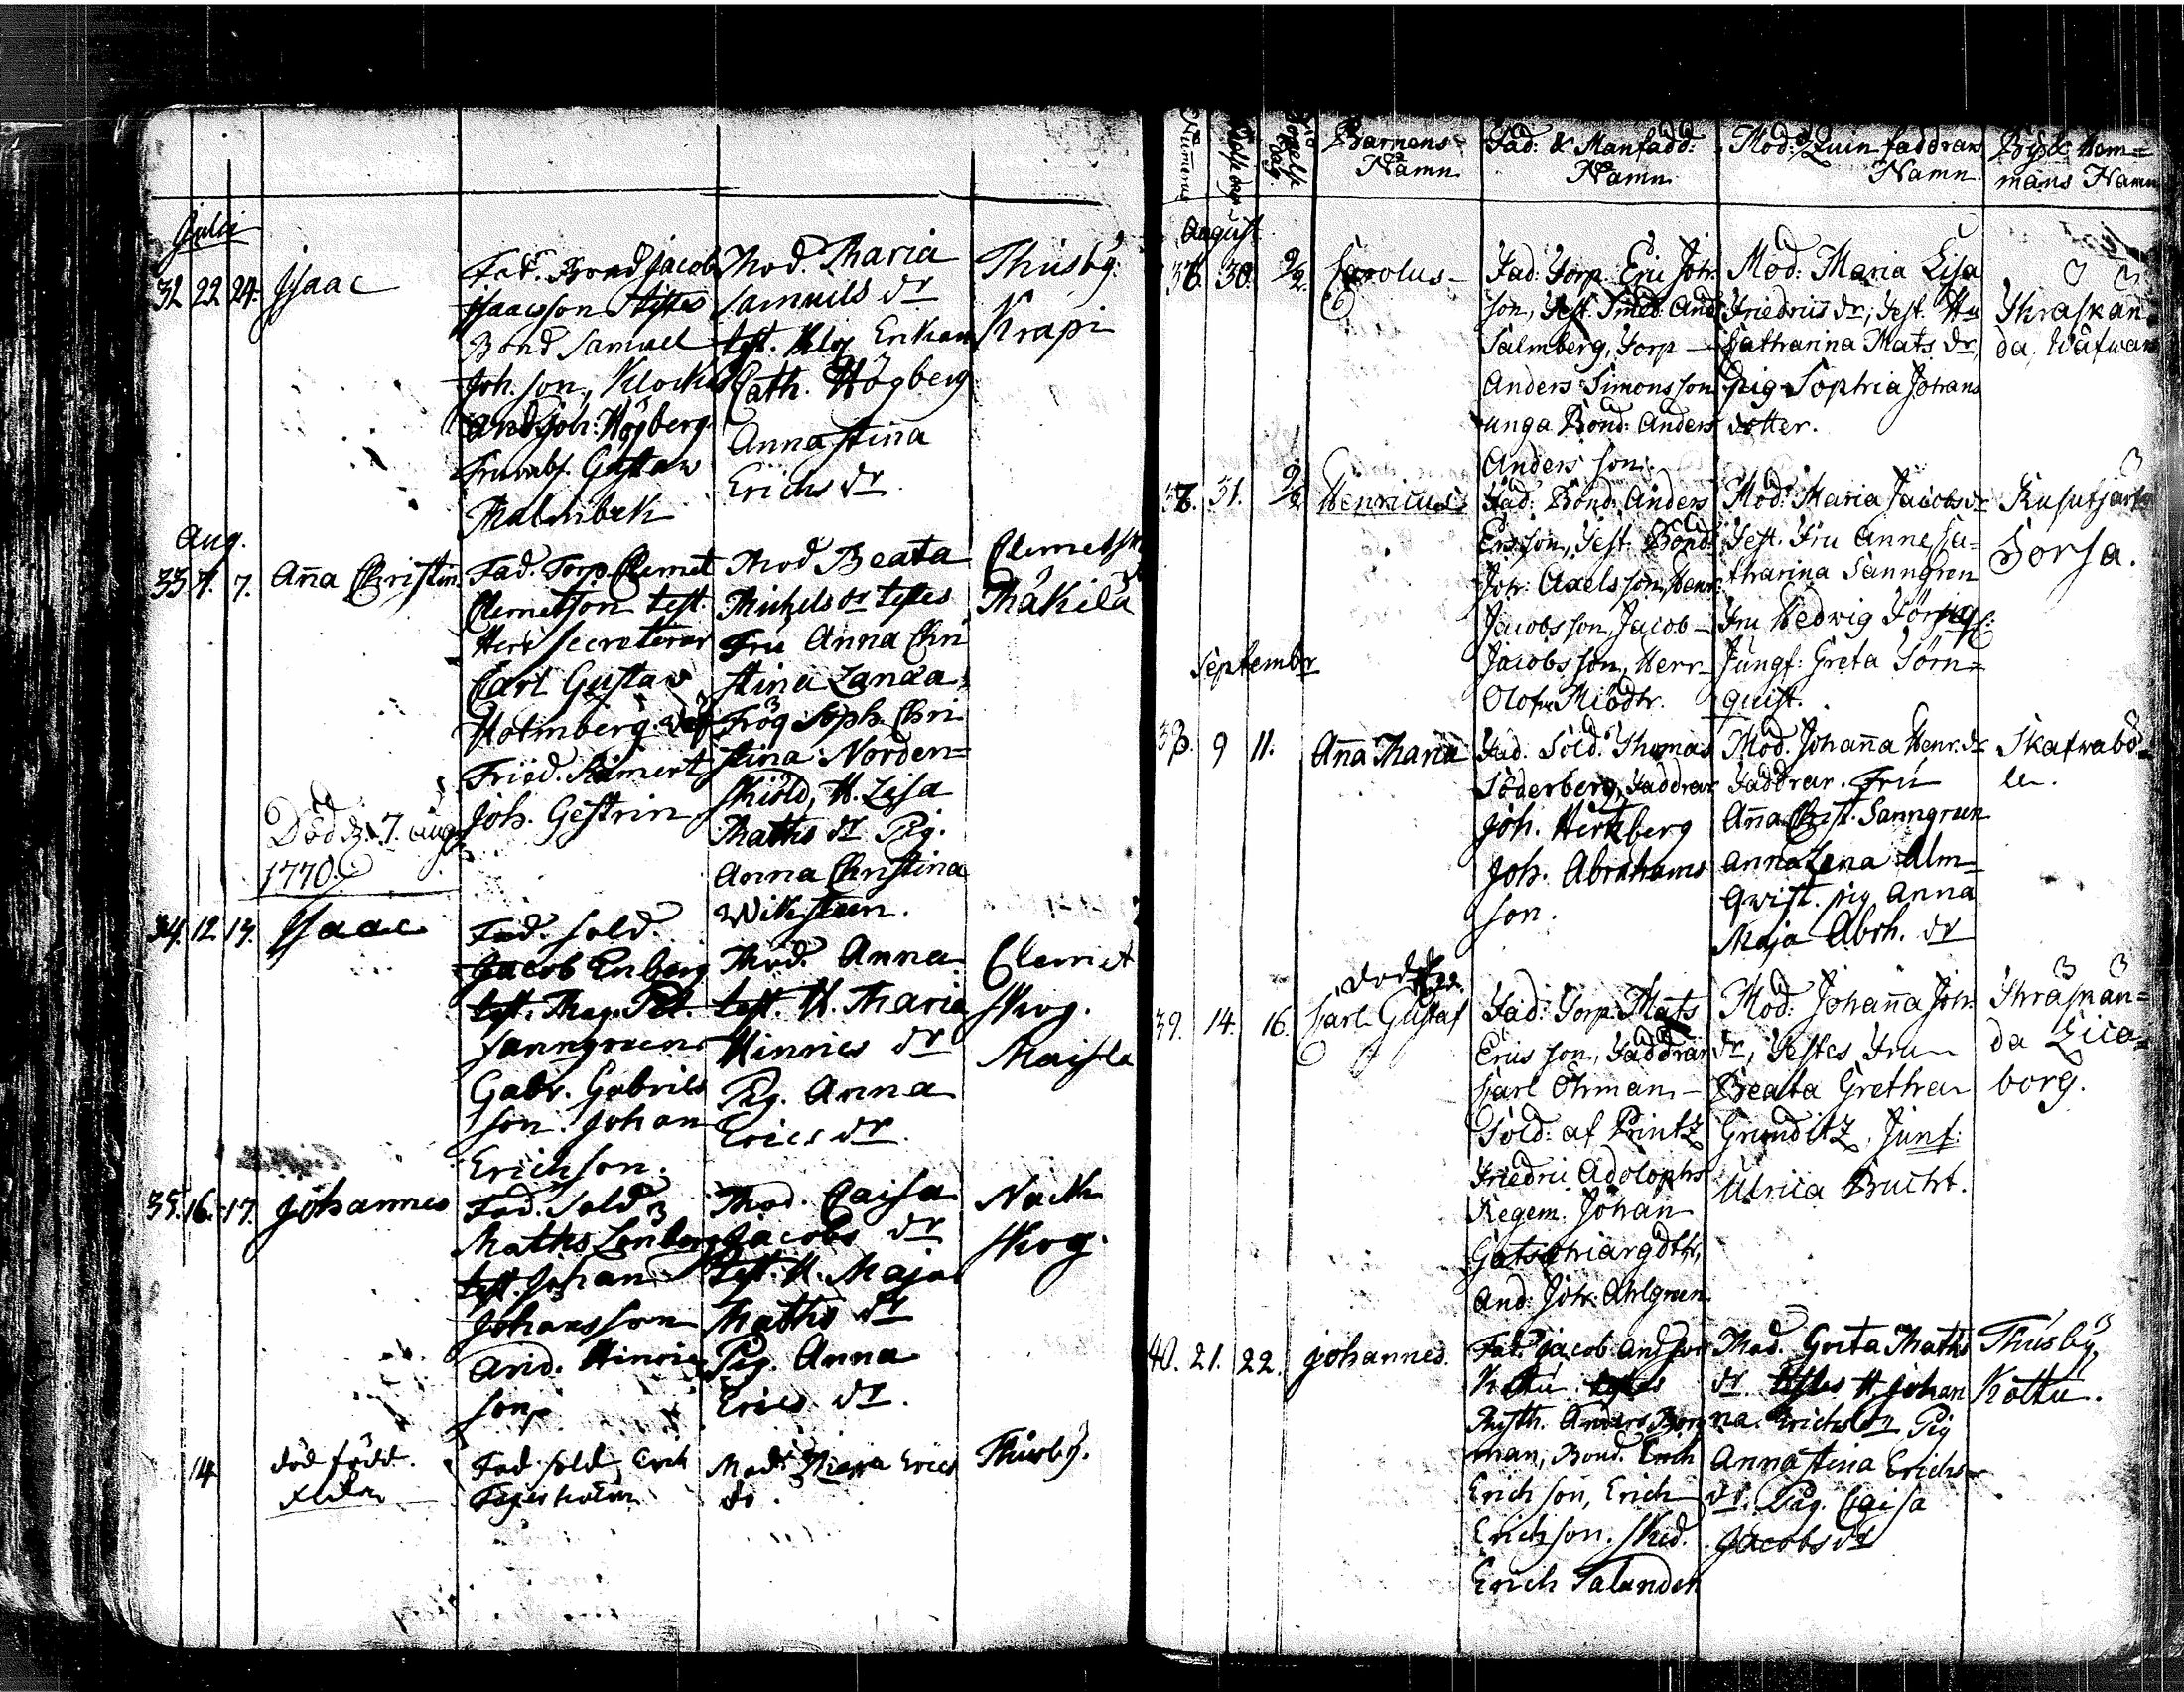 Julii
32 22 24. Isaac
Fad. Bond Jacob
Isaacsson testes
Bond Samuel
Joh. son, Klocka
And. Joh: Högberg
Gustaw
Malmbek
Mod. Maria
Samuels dr
test. Erikson
Cath. Högberg
Anna Stina
Erichs dr
Thusby.
Krapi
Aug.
33 7. 7. Anna Christin.
Död d. 7. aug.
1770.
Fad. Torp. Clemet
Clemetson test.
Herr Secreterar
Carl Gustaw
Holmberg
Fried.
Joh. Gestrin
Mod Beata
Michels dr testes
Fru Anna Chri
stina Landa
Frög Soph. Chri
stina Norden=
skiöld, H. Lisa
Maths dr Pig.
Anna Christina
Wiksteen.
Clemetsk
Mäkilä
34. 12 13. Isaac
Fad. Sold.
Jacob Enberg
test. Mag. Pet.
Sanngreen
Gabr. Gabriels
son. Johan
Erichson.
Mod. Anna
test. H. Maria
Hinrics dr
Pig. Anna
Erics dr.
Clemet
skog.
Maisla
35. 16. 17. Johannes
Fad. Sold.
Maths Lönberg
test. Johan
Johansson
And. Hinric
son
Mod. Caisa
Jacobs dr
test. H. Maja
Maths dr
Pig. Anna
Erics dr.
Nack
skog.
14 död född.
Fad. Sold. Erik
Mod. Maja Erics
dr.
Thusby.
Numerus
Döpelse
dag.
Barnens
Namn
Fad: & Manfadd:
Namn
Mod: & Quinfaddrars
Namn
By & Hem=
mans Namn
August
36. 30. 9/2. Carolus
Fad: Torp. Eric Joh:
son, Test. Smed. And
Salmberg, Torp
Anders Simonsson
unga Bond: Anders
Anders son.
Mod: Maria Lisa
Friedrics dr, Test. Hu
Catharina Mats dr,
Pig Sophia Johans
dotter.
Thraskän
da, Wafwars
37. 31. 9/2 Henricus
Fad: Bond: Anders
Ersson, Test. Bond
Joh: Axelsson, Henr:
Jacobsson, Jacob
Jacobsson, Herr
Olof Miödtr.
Mod: Maria Jacobs dr
Test. Fru Anne Ca=
tharina Sanngren
Fru Hedwig
Jungf: Greta Törn=
quist.
Rusutjärf
Sorsa.
Septembr
38. 9 11. Anna Maria
Fad. Sold. Thomas
Söderberg, Faddrar
Joh. Hertzberg
Joh. Abrahams
son.
Mod. Johanna Henr. dr
Faddrar. Fru
Anna Christ. Sanngreen
Anna Lena Alm=
qvist. pig Anna
Maja Abrh. dr
Skafwabö=
le.
död
39. 14. 16. Carl Gustaf
Fad: Torp. Mats
Erics son, Faddrar
Carl Öhman
Sold: af Printz
Friedric Adolophs
Regem: Johan
And: Joh: Ahlgreen
Mod: Johanna Joh:
dr, Testes Fru
Beata Gretha
Grunditz. Junf:
Ulrica Brucht.
Thräskän=
da Lica=
borg.
40. 21. 22. Johannes.
Fad. Jacob Andson
Kottu. testes
Rusth. Anders Berg
man, Bond. Erich
Erich son, Erich
Erichson. Sked.
Erich Salander
Mod. Greta Maths
dr. testes H. Johan
na Erichs dr Pig
Anna Stina Erichs
dr. Pig. Caisa
Jacobs dr
Thusby,
Kottu.